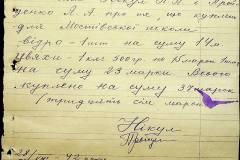 ценко А.А про те, що куплен
для Мостівської школи
відро – 1 шт на суму 14 м.
цвяхи – 1 кіл 500 гр по 15 марок
на суму 23 марки Всього
куплено на суму 37 марок
(тридцять сім марок)
Нікул